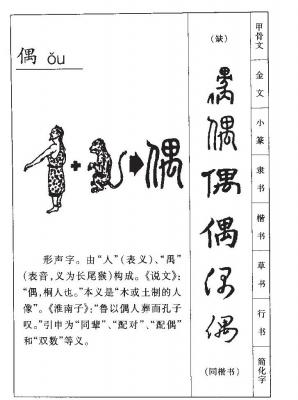 偶 ǒu
形声字。由“人”(表义)、“禺”
(表音,义为长尾猴)构成。《说文》:
“偶,桐人也。”本义是“木或土制的人
像”。《淮南子》:“鲁以偶人葬而孔子
叹。”引申为“同辈”、“配对”、“配偶”
和“双数”等义。
偶
(缺)
禺
偶
偶
偶
偶
偶
(同楷书)
甲骨文
金文
小篆
隶书
楷书
草书
行书
简化字